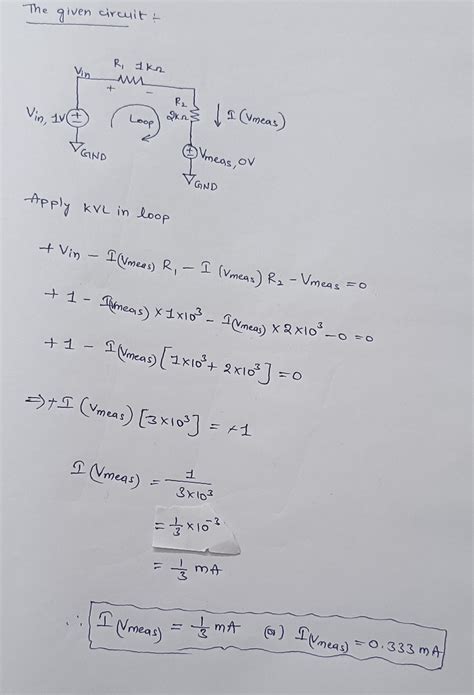 The given circuit :-
R₁ 1kΩ
Vin
+ -
R₂
2kΩ
↓ I (Vmeas)
Vin, 1V
Loop
Vmeas, 0V
GND
GND
Apply KVL in loop
+ Vin - I(Vmeas) R₁ - I (Vmeas) R₂ - Vmeas = 0
+ 1 - I(Vmeas) × 1×10³ - I(Vmeas) × 2×10³ - 0 = 0
+ 1 - I(Vmeas) [1×10³ + 2×10³] = 0
⇒ + I (Vmeas) [3×10³] = +1
I (Vmeas) = 1 / 3×10³
= 1/3 × 10⁻³
= 1/3 mA
∴ I (Vmeas) = 1/3 mA (or) I(Vmeas) = 0.333 mA